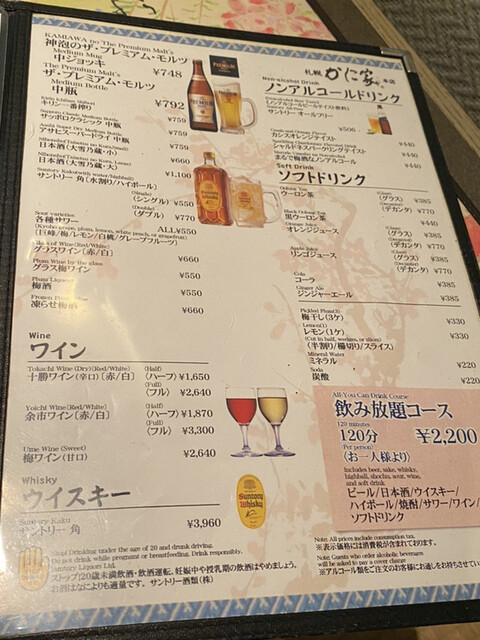 KAMIAWA no The Premium Malt's
神泡のザ・プレミアム・モルツ
Medium Mug
中ジョッキ ¥748
The Premium Malt's
ザ・プレミアム・モルツ
Medium Bottle
中瓶 ¥792
Kirin Ichiban Shibori
キリン一番搾り 中瓶 ¥759
サッポロクラシック 中瓶 ¥759
Asahi Super Dry Medium Bottle
アサヒスーパードライ 中瓶 ¥759
日本酒(大雪乃蔵・小) ¥660
日本酒(大雪乃蔵・大) ¥1,100
Suntory Kaku(with water/highball)
サントリー角(水割り/ハイボール)
(Single)
(シングル) ¥550
(Double)
(ダブル) ¥770
Sour varieties
各種サワー ALL¥550
(Kyoho grape, plum, lemon, white peach, or grapefruit)
(巨峰/梅/レモン/白桃/グレープフルーツ)
Glass of Wine(Red/White)
グラスワイン〔赤/白〕 ¥660
Plum Wine by the glass
グラス梅ワイン ¥550
Plum Liqueur
梅酒 ¥550
凍らせ梅酒 ¥660
Wine
ワイン
Tokachi Wine (Dry)(Red/White)
十勝ワイン(辛口)〔赤/白〕
(Half)
(ハーフ) ¥1,650
(Full)
(フル) ¥2,640
Yoichi Wine(Red/White)
余市ワイン〔赤/白〕
(Half)
(ハーフ) ¥1,870
(Full)
(フル) ¥3,300
Ume Wine (Sweet)
梅ワイン(甘口) ¥2,640
Whisky
ウイスキー
Suntory Kaku
サントリー 角 ¥3,960
Suntory
Whisky
Stop! Drinking under the age of 20 and drunk driving.
Do not drink while pregnant or breastfeeding. Drink responsibly.
Suntory Liquors Ltd.
ストップ!20歳未満飲酒・飲酒運転。妊娠中や授乳期の飲酒はやめましょう。
お酒はなによりも適量です。サントリー酒類(株)
札幌 かに家 本店
Non-alcohol Drink
ノンアルコールドリンク
Non-alcohol Beer Taste
(ノンアルコールビールテイスト飲料)
サントリー オールフリー ¥506
Cassis and Orange Flavor
カシスオレンジテイスト ¥440
シャルドネスパークリングテイスト ¥440
まるで梅酒なノンアルコール ¥440
Soft Drink
ソフトドリンク
Oolong Tea
ウーロン茶
(Glass)
(グラス) ¥385
(Decanter)
(デカンタ) ¥770
Black Oolong Tea
黒ウーロン茶 ¥440
Orange Juice
オレンジジュース
(Glass)
(グラス) ¥385
(Decanter)
(デカンタ) ¥770
Apple Juice
リンゴジュース
(Glass)
(グラス) ¥385
(Decanter)
(デカンタ) ¥770
Cola
コーラ ¥385
Ginger Ale
ジンジャーエール ¥385
Pickled Plum(3)
梅干し(3ケ) ¥330
Lemon(1)
レモン(1ケ) ¥330
(Cut in half, wedges, or slices)
(半割り/櫛切り/スライス)
Mineral Water
ミネラル ¥220
Soda
炭酸 ¥220
All-You Can Drink Course
飲み放題コース
120 minutes
120分 ¥2,200
(Per person)
(お一人様より)
Includes beer, sake, whisky,
highball, shochu, sour, wine,
and soft drink
ビール/日本酒/ウイスキー/
ハイボール/焼酎/サワー/ワイン/
ソフトドリンク
Note: All prices include consumption tax.
※表示価格には消費税が含まれております。
Note: Guests who order alcoholic beverages
will be asked to pay a cover charge
※アルコール類をご注文のお客様にお通しをお持ちさせてい